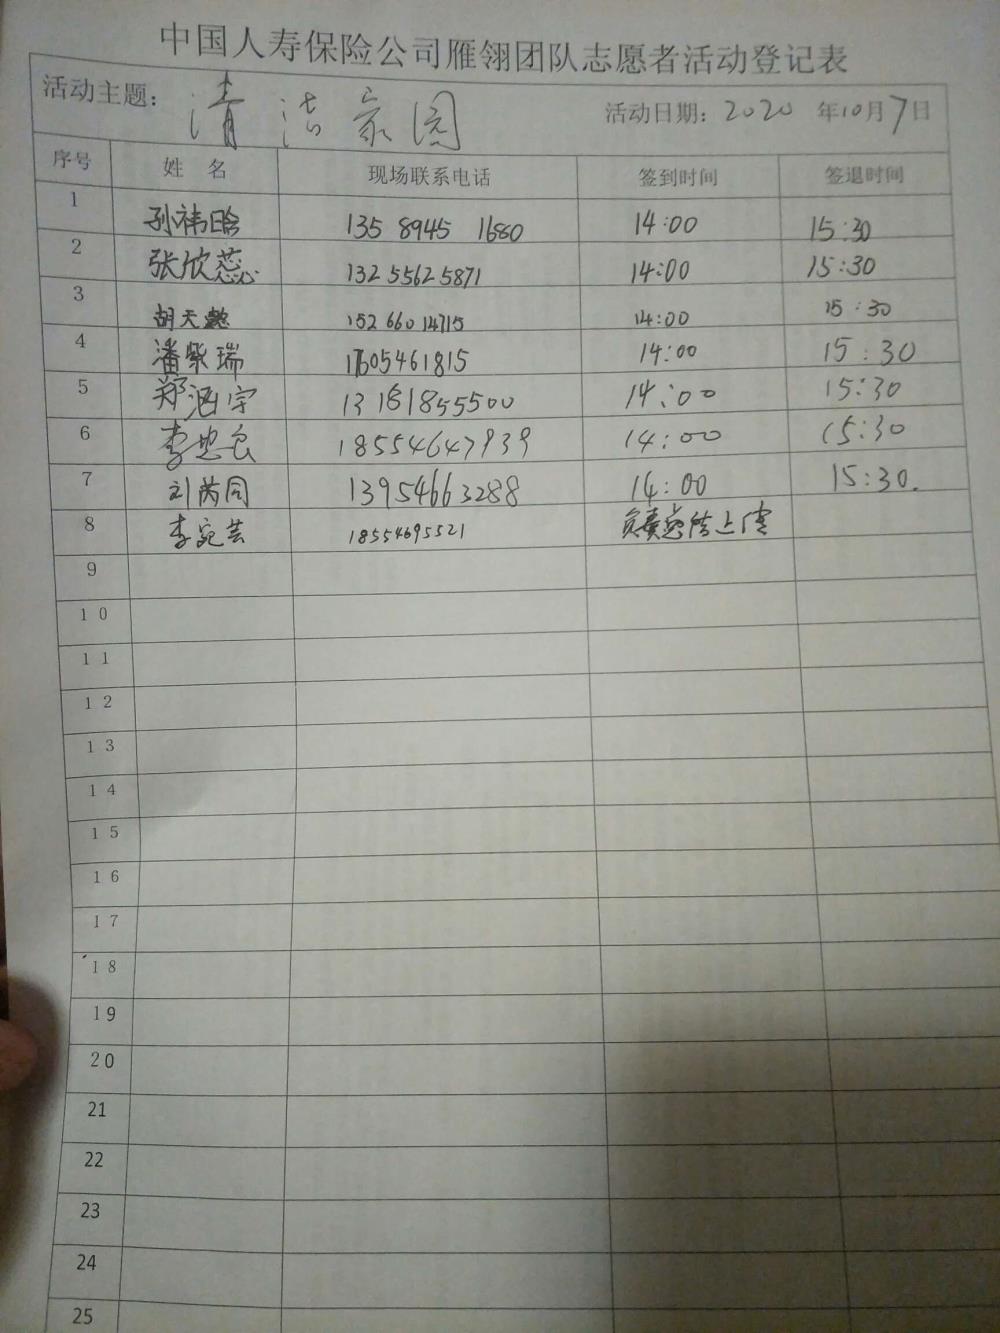 中国人寿保险公司雁翎团队志愿者活动登记表
活动主题： 清洁家园 活动日期：2020 年10月7日
序号 姓 名 现场联系电话 签到时间 签退时间
1 孙祎晗 135 8945 1680 14:00 15:30
2 张欣蕊 132 5562 5871 14:00 15:30
3 胡天懿 152 660 14715 14:00 15:30
4 潘紫瑞 17605461815 14:00 15:30
5 郑涵宇 13181855500 14:00 15:30
6 李 18554647939 14:00 15:30
7 刘芮同 13954663288 14:00 15:30.
8 李宛芸 18554695521 负责总结上传
9
10
11
12
13
14
15
16
17
18
19
20
21
22
23
24
25